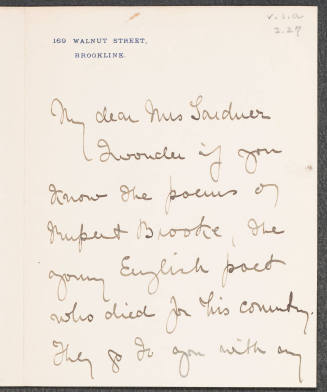 v.s.a
2.27
169 WALNUT STREET,
BROOKLINE.
My dear Mrs Gardner
I wonder if you
know the poems of
Rupert Brooke, the
young English poet
who died for his country.
They go to you with my